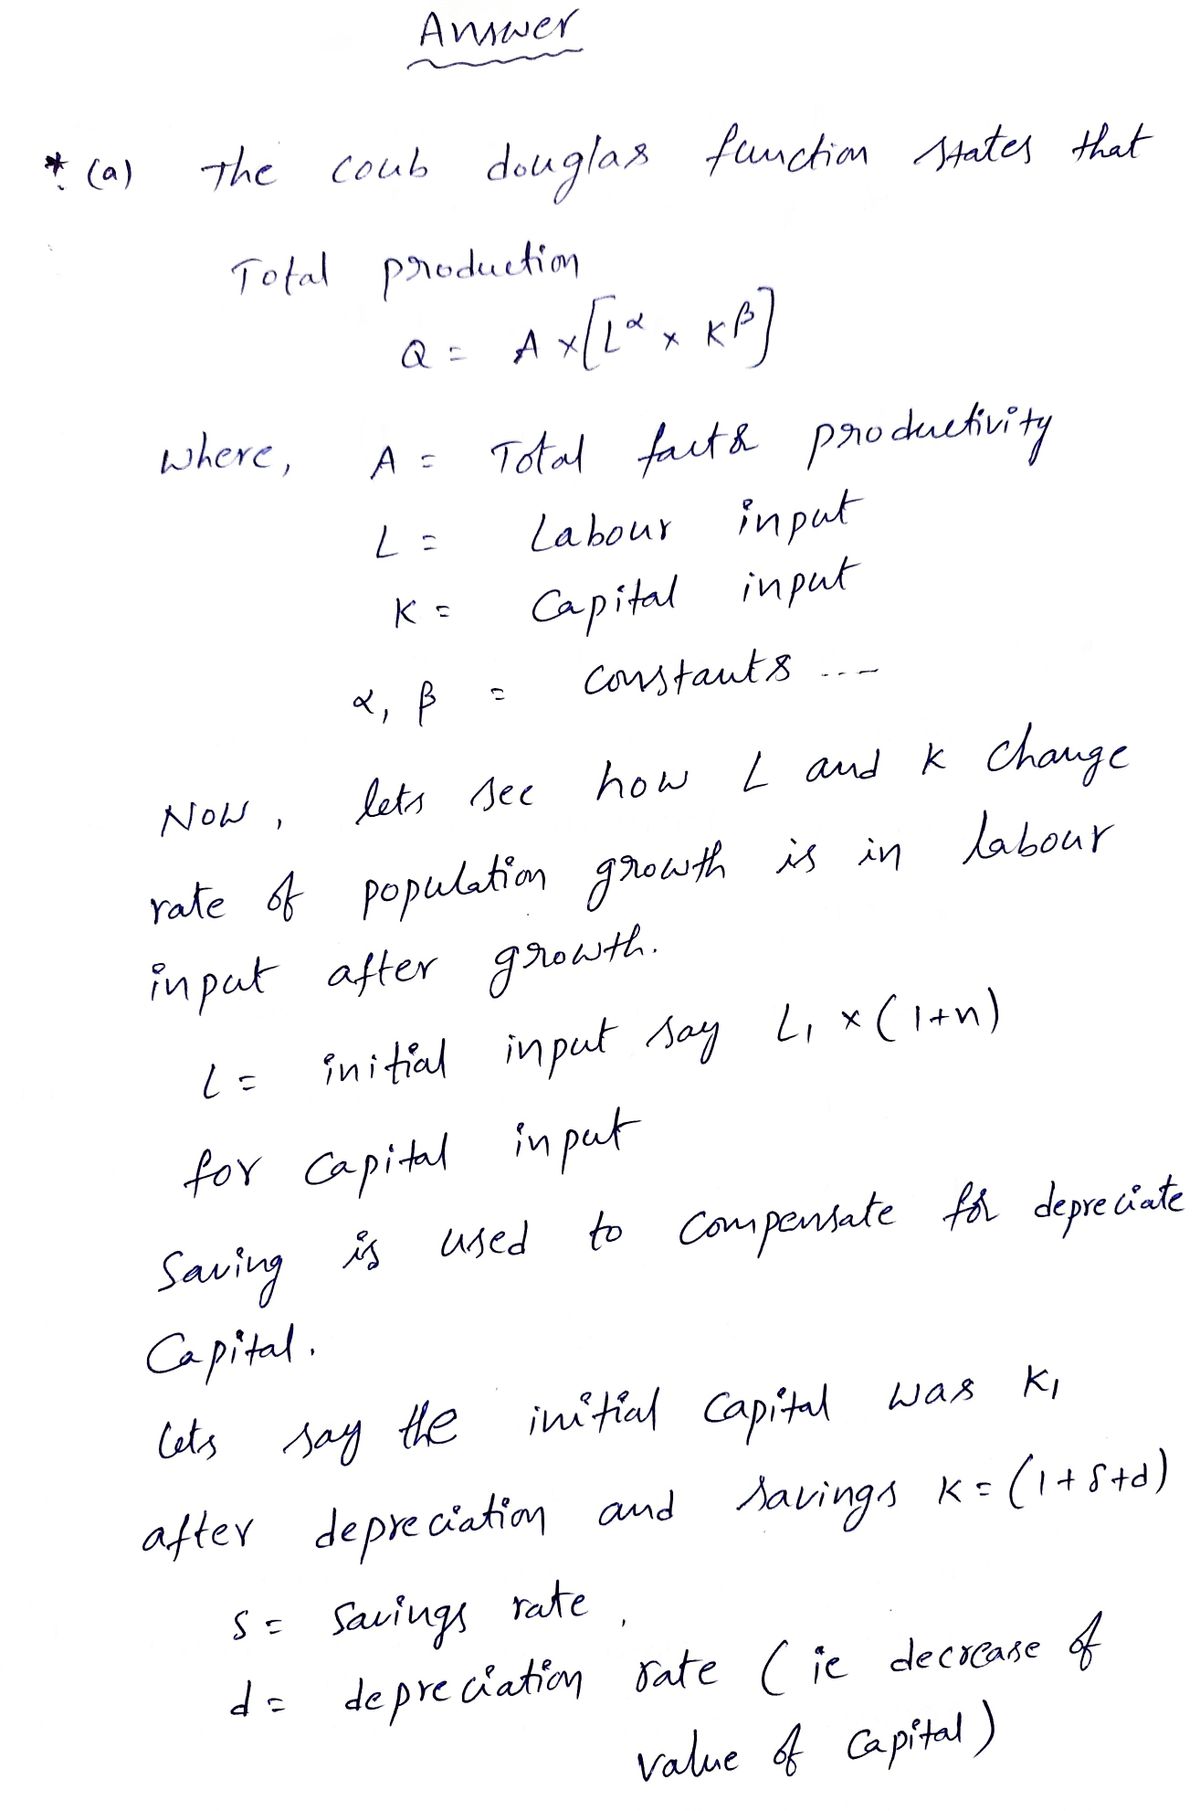 Answer
* (a) The coub douglas function states that
Total production
Q = A × [L^α × K^β]
where, A = Total factor productivity
L = Labour input
K = Capital input
α, β = constants ----
Now, lets see how L and K change
rate of population growth is in labour
input after growth.
L = initial input say L₁ × (1+n)
for capital input
Saving is used to compensate for depreciate
Capital.
lets say the initial capital was K₁
after depreciation and savings K = (1+s+d)
S = Savings rate,
d = depreciation rate (ie decrease of
value of capital)